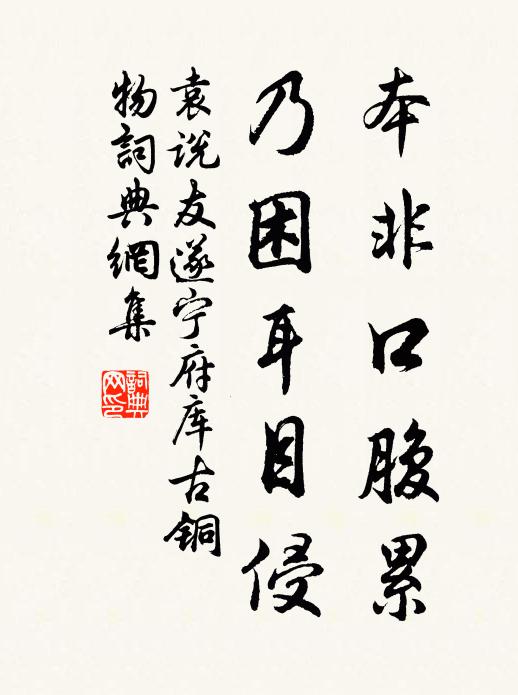 本非口腹累
乃困耳目侵
袁说友遂宁府库古铜
物詞典網集
詞典网印